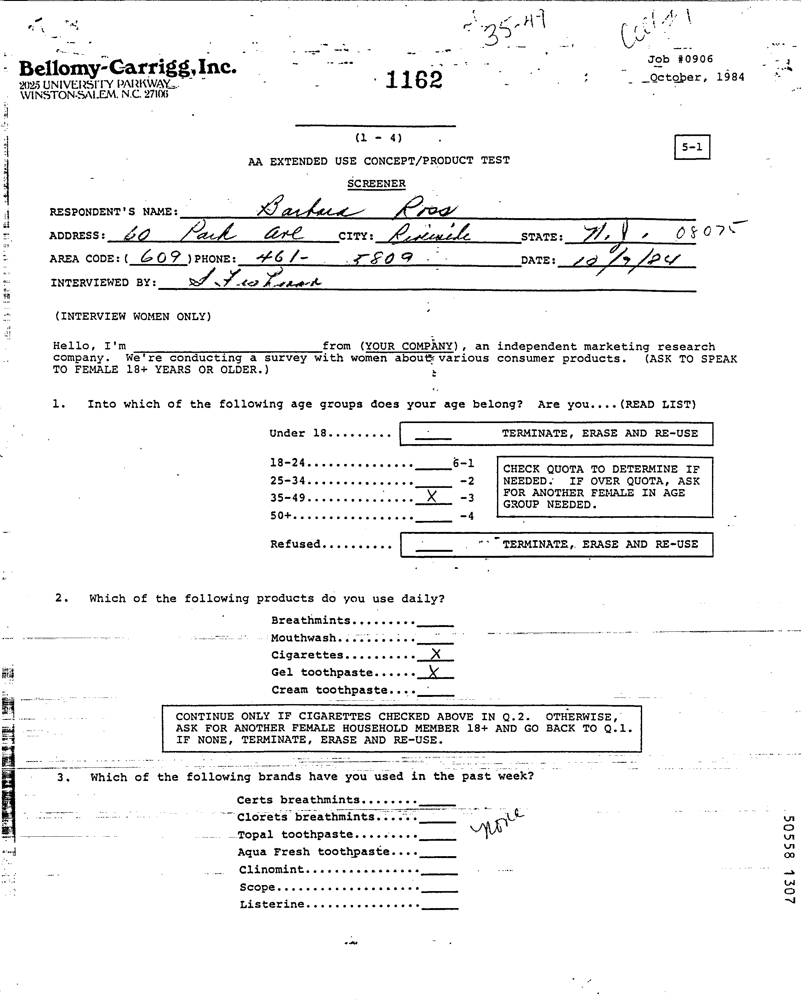 35-47
Bellomy-Carrigg, Inc.
2025 UNIVERSITY PARKWAY
WINSTON-SALEM, N.C. 27106
1162
Job #0906
October, 1984
(1 - 4)
5-1
AA EXTENDED USE CONCEPT/PRODUCT TEST
SCREENER
RESPONDENT'S NAME: Barbara Ross
ADDRESS: 60 Park Ave CITY: Riverside STATE: N.J. 08075
AREA CODE: (609) PHONE: 461-5809 DATE: 10/9/84
INTERVIEWED BY:
(INTERVIEW WOMEN ONLY)
Hello, I'm ____ from (YOUR COMPANY), an independent marketing research
company. We're conducting a survey with women about various consumer products. (ASK TO SPEAK
TO FEMALE 18+ YEARS OR OLDER.)
1. Into which of the following age groups does your age belong? Are you....(READ LIST)
Under 18......... ____ TERMINATE, ERASE AND RE-USE
18-24............... ____ 6-1
25-34............... ____ -2
35-49............... X -3
50+................ ____ -4
CHECK QUOTA TO DETERMINE IF
NEEDED. IF OVER QUOTA, ASK
FOR ANOTHER FEMALE IN AGE
GROUP NEEDED.
Refused.......... ____ TERMINATE, ERASE AND RE-USE
2. Which of the following products do you use daily?
Breathmints......... ____
Mouthwash........... ____
Cigarettes.......... X
Gel toothpaste...... X
Cream toothpaste.... ____
CONTINUE ONLY IF CIGARETTES CHECKED ABOVE IN Q.2. OTHERWISE,
ASK FOR ANOTHER FEMALE HOUSEHOLD MEMBER 18+ AND GO BACK TO Q.1.
IF NONE, TERMINATE, ERASE AND RE-USE.
3. Which of the following brands have you used in the past week?
Certs breathmints........ ____
Clorets breathmints...... ____
none
Topal toothpaste......... ____
Aqua Fresh toothpaste.... ____
Clinomint................ ____
Scope.................... ____
Listerine................ ____
50558 1307